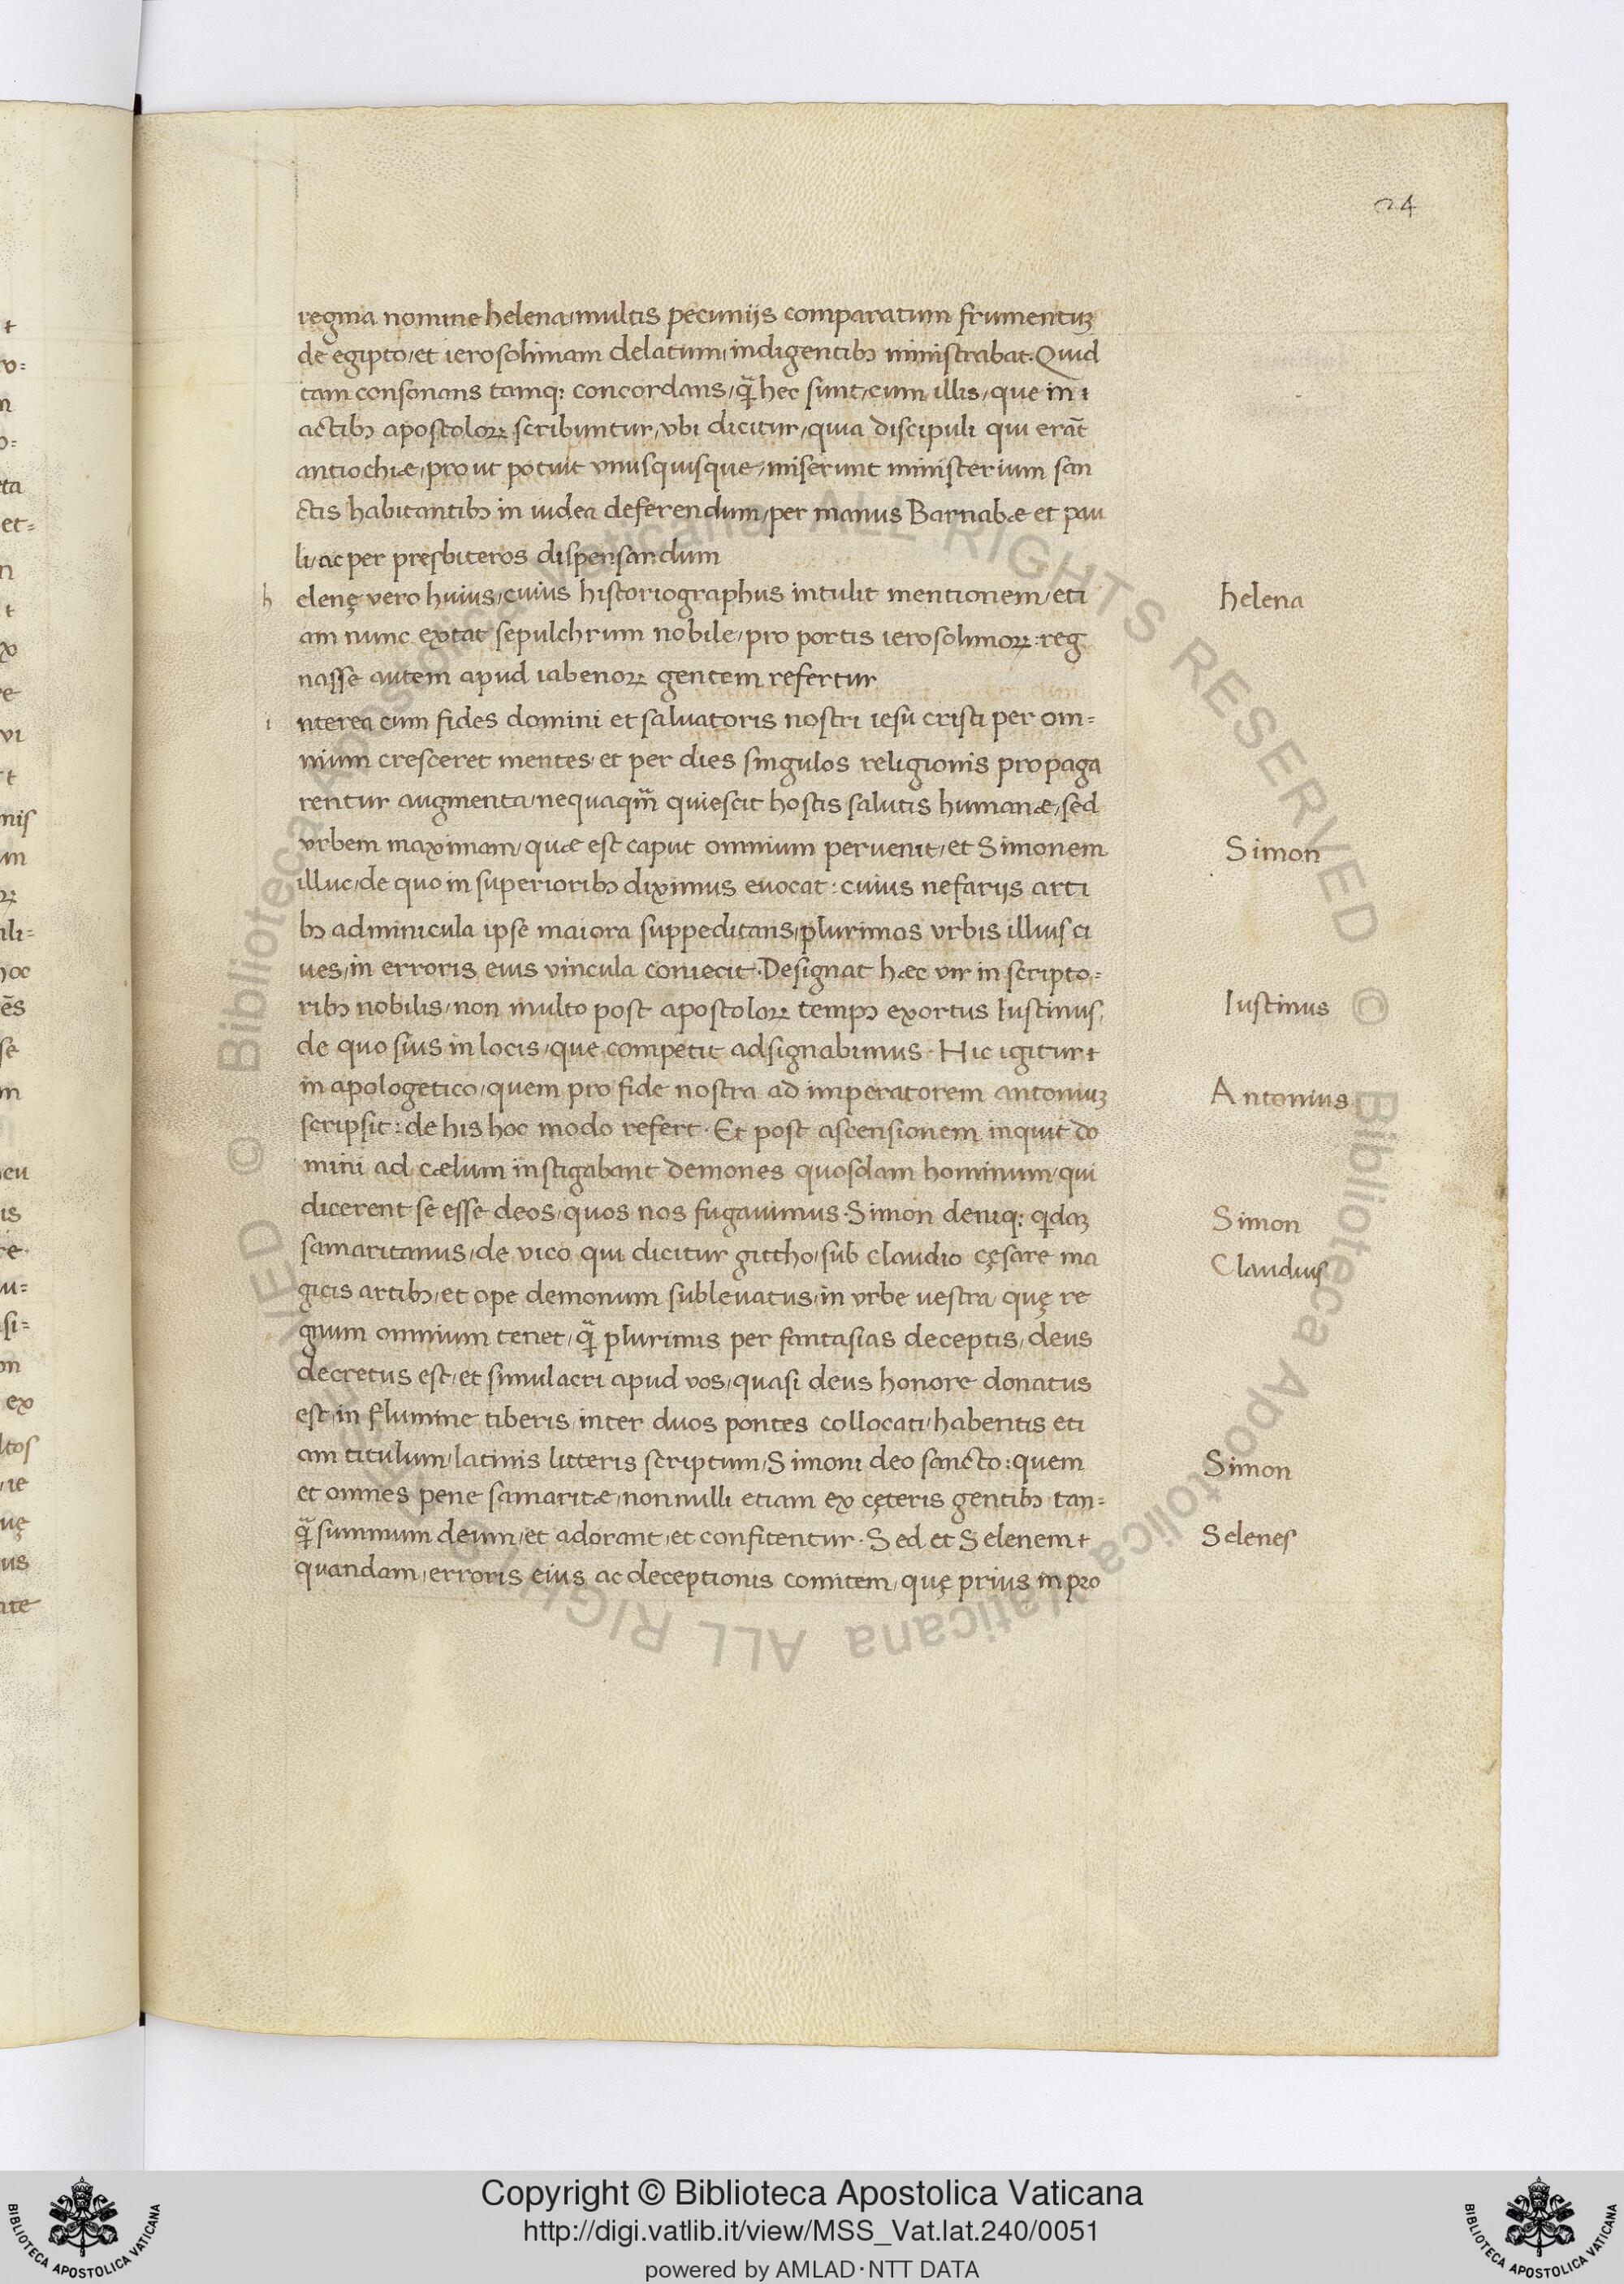 24
regina nomine helena, multis pecunijs comparatum frumentuꝫ
de egipto, et ierosolimam delatum, indigentibꝫ ministrabat. Quid
tam consonans tamqꝫ concordans, qᷓ hec sunt, cum illis, que in
actibꝫ apostoloꝝ scribuntur, vbi dicitur, quia discipuli qui erāt
antiochiæ, prout potuit vnusquisque, miserunt ministerium san
ctis habitantibꝫ in iudea deferendum, per manus Barnabæ et pau
li, ac per presbiteros dispensandum
h elenę vero huius, cuius historiographus intulit mentionem, eti
am nunc extat sepulchrum nobile, pro portis ierosolimoꝝ: reg
nasse autem apud iabenoꝝ gentem refertur
i nterea cum fides domini et saluatoris nostri iesu cristi per om=
nium cresceret mentes, et per dies singulos religionis propaga
rentur augmenta, nequaqᷓm quiescit hostis salutis humanæ, sed
vrbem maximam, quæ est caput omnium peruenit, et Simonem
illuc, de quo in superioribꝫ diximus euocat: cuius nefarijs arti
bꝫ adminicula ipse maiora suppeditans, plurimos vrbis illius ci
ues, in erroris eius vincula coniecit. Designat hæc vir in scripto=
ribꝫ nobilis, non multo post apostoloꝝ tempꝫ exortus Iustinus,
de quo suis in locis, que competit adsignabimus. Hic igitur
in apologetico, quem pro fide nostra ad imperatorem antoniuꝫ
scripsit: de his hoc modo refert. Et post ascensionem inquit do
mini ad cælum instigabant demones quosdam hominum, qui
dicerent se esse deos, quos nos fugauimus. Simon deniqꝫ qͥdaꝫ
samaritanus, de vico qui dicitur gittho, sub claudio cęsare ma
gicis artibꝫ, et ope demonum subleuatus, in vrbe uestra, quę re
gnum omnium tenet, qᷓ plurimis per fantasias deceptis, deus
decretus est, et simulacri apud vos, quasi deus honore donatus
est, in flumine tiberis, inter duos pontes collocati, habentis eti
am titulum, latinis litteris scriptum, Simoni deo sancto: quem
et omnes pene samaritæ, nonnulli etiam ex cęteris gentibꝫ tan=
qᷓ summum deum, et adorant, et confitentur. Sed et Selenem
quandam, erroris eius ac deceptionis comitem, quę prius in pro
helena
Simon
Iustinus
Antonius
Simon
Claudius
Simon
Selenes
Copyright © Biblioteca Apostolica Vaticana
http://digi.vatlib.it/view/MSS_Vat.lat.240/0051
powered by AMLAD·NTT DATA
BIBLIOTECA APOSTOLICA VATICANA
BIBLIOTECA APOSTOLICA VATICANA